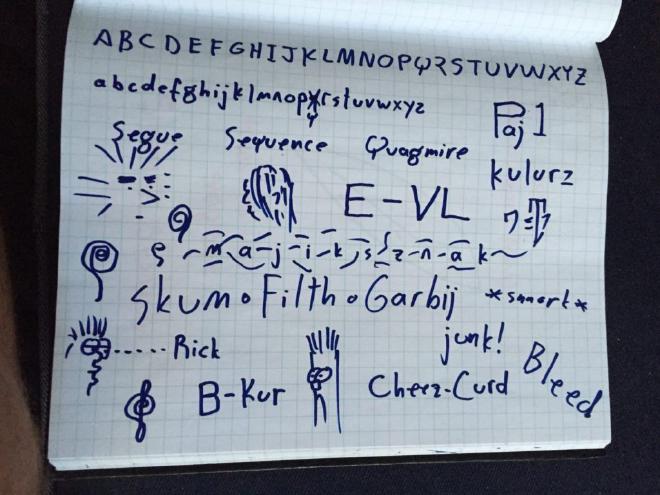 ABCDEFGHIJKLMNOPQRSTUVWXYZ
abcdefghijklmnopqrstuvwxyz
Paj 1
Segue Sequence Quagmire
kulurz
E-VL
m-a-j-i-k, s-z-n-a-k
Skum • Filth • Garbij *snnork*
junk!
Rick
Bleed
B-Kur Cheez-Curd